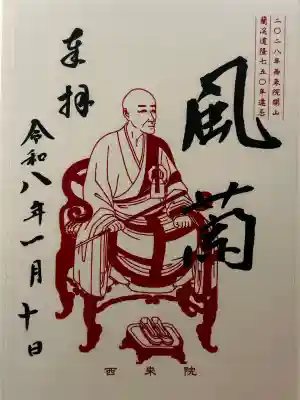 二〇二八年西来院開山
蘭渓道隆七五〇年遠忌
風蘭
奉拝
令和八年一月十日
西来院